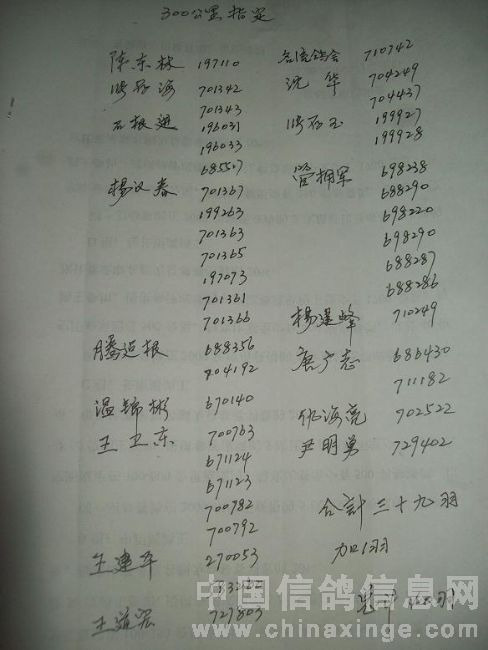 300公里指定
陈东林 197110
701342
701343
石根进 196031
196033
685527
杨义春 701367
199263
701363
701365
197073
701361
701366
滕运根 688356
704192
温锦彬 670140
王卫东 700763
671124
671123
700782
700792
王建军 270053
王道宏 727803
710742
沈华 704249
704437
199927
199928
管拥军 698238
688290
698220
698290
688287
688286
杨建峰 710249
唐广志 686430
711182
仇海亮 702522
尹明勇 729402
合計三十九羽
加1羽
中国信鸽信息网
www.chinaxinge.com